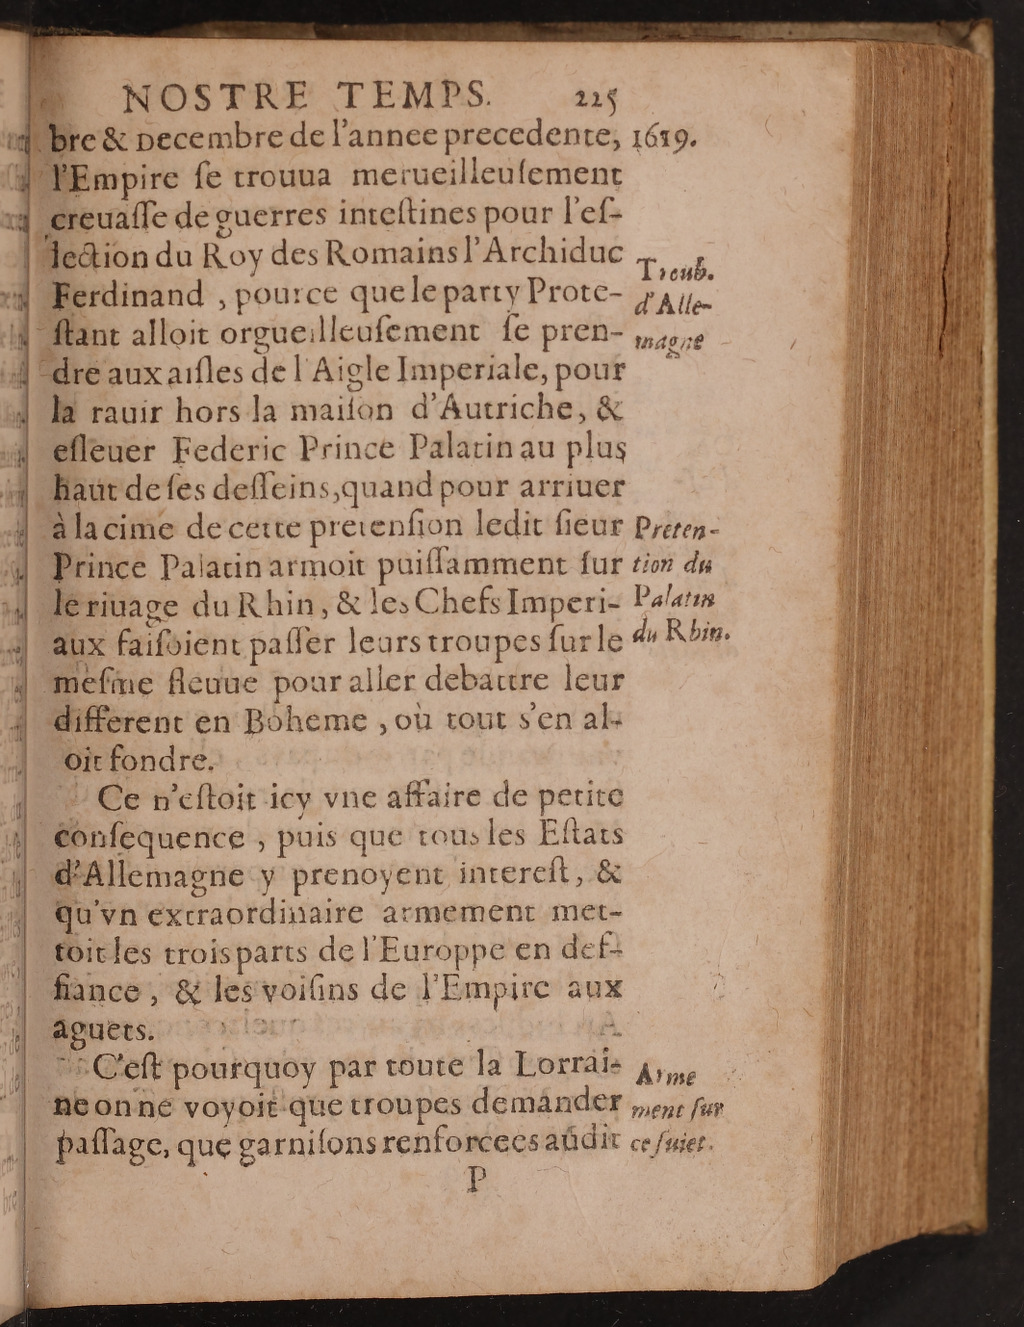 NOSTRE TEMPS. 225
bre & Decembre de l'annee precedente, 1619.
l'Empire ſe trouua merueilleuſement
creuaſſe de guerres inteſtines pour l'eſ-
lection du Roy des Romains l'Archiduc
Ferdinand , pource que le party Prote-
ſtant alloit orgueilleuſement ſe pren-
dre aux aiſles de l'Aigle Imperiale, pour
la rauir hors la maiſon d'Autriche, &
eſleuer Federic Prince Palatin au plus
haut de ſes deſſeins, quand pour arriuer
à la cime de cette pretenſion ledit ſieur
Prince Palatin armoit puiſſamment ſur
le riuage du Rhin, & les Chefs Imperi-
aux faiſoient paſſer leurs troupes ſur le
meſme fleuue pour aller debattre leur
different en Boheme , où tout s'en al-
oit fondre.
Ce n'eſtoit icy vne affaire de petite
conſequence , puis que tous les Eſtats
d'Allemagne y prenoyent intereſt, &
qu'vn extraordinaire armement met-
toit les trois parts de l'Europpe en def-
fiance , & les voiſins de l'Empire aux
aguets.
C'eſt pourquoy par toute la Lorrai-
ne on ne voyoit que troupes demander
paſſage, que garniſons renforcees audit
P
Troub.
d'Alle-
magne
Preten-
tion du
Palatin
du Rhin.
Arme
ment ſur
ce ſuiet.